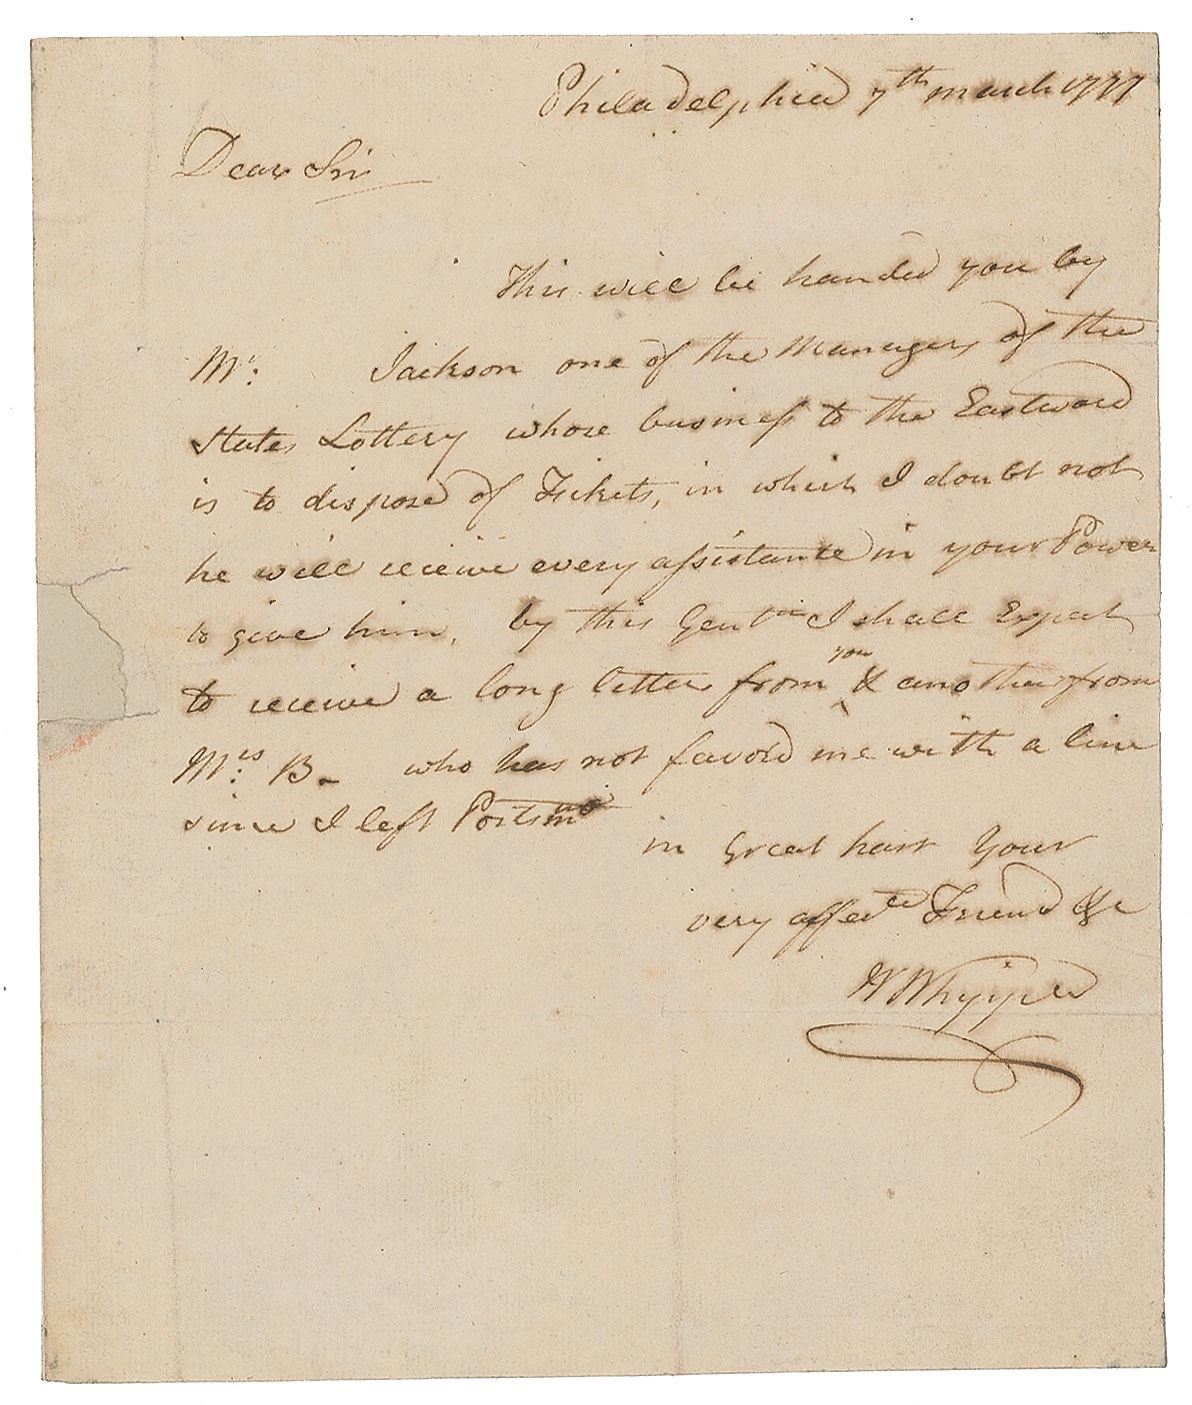 Philadelphia 7th march 1777
Dear Sir
This will be handed you by
Mr: Jackson one of the Managers of the
States Lottery whose business to the Eastward
is to dispose of Tickets, in which I doubt not
he will receive every assistance in your Power
to give him, by this Gentn I shall Expect
to receive a long letter from you & another from
Mrs: B- who has not favord me with a line
since I left Portsmo
in great hast Your
very affecte Friend &c
Wm Whipple